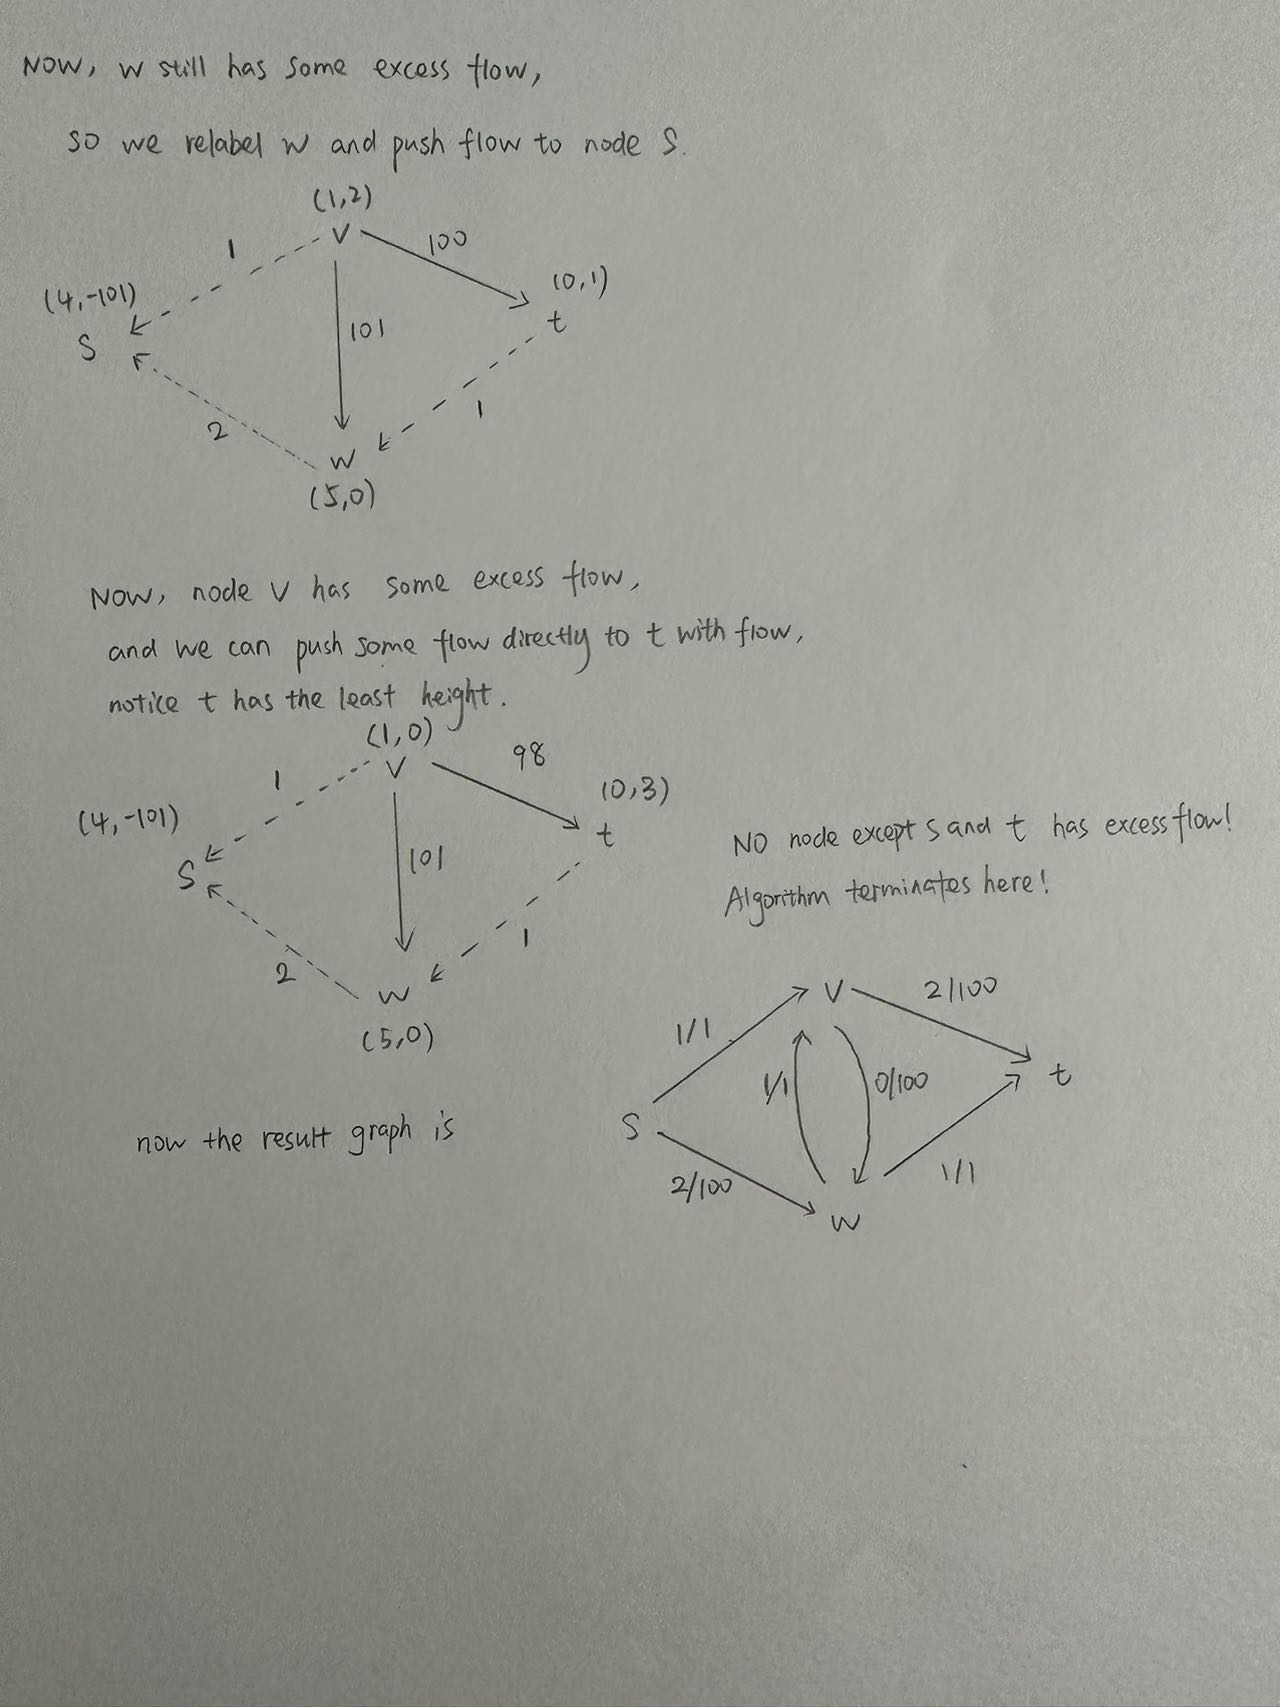 NOW, w still has some excess flow,
so we relabel w and push flow to node S.
(1,2)
V
1
100
(0,1)
(4,-101)
t
S
101
2
1
w
(5,0)
Now, node v has some excess flow,
and we can push some flow directly to t with flow,
notice t has the least height.
(1,0)
V
98
1
(0,3)
(4,-101)
t
NO node except s and t has excess flow!
101
S
Algorithm terminates here!
1
2
w
V
2/100
(5,0)
1/1
1/1
0/100
t
now the result graph is
S
2/100
1/1
w